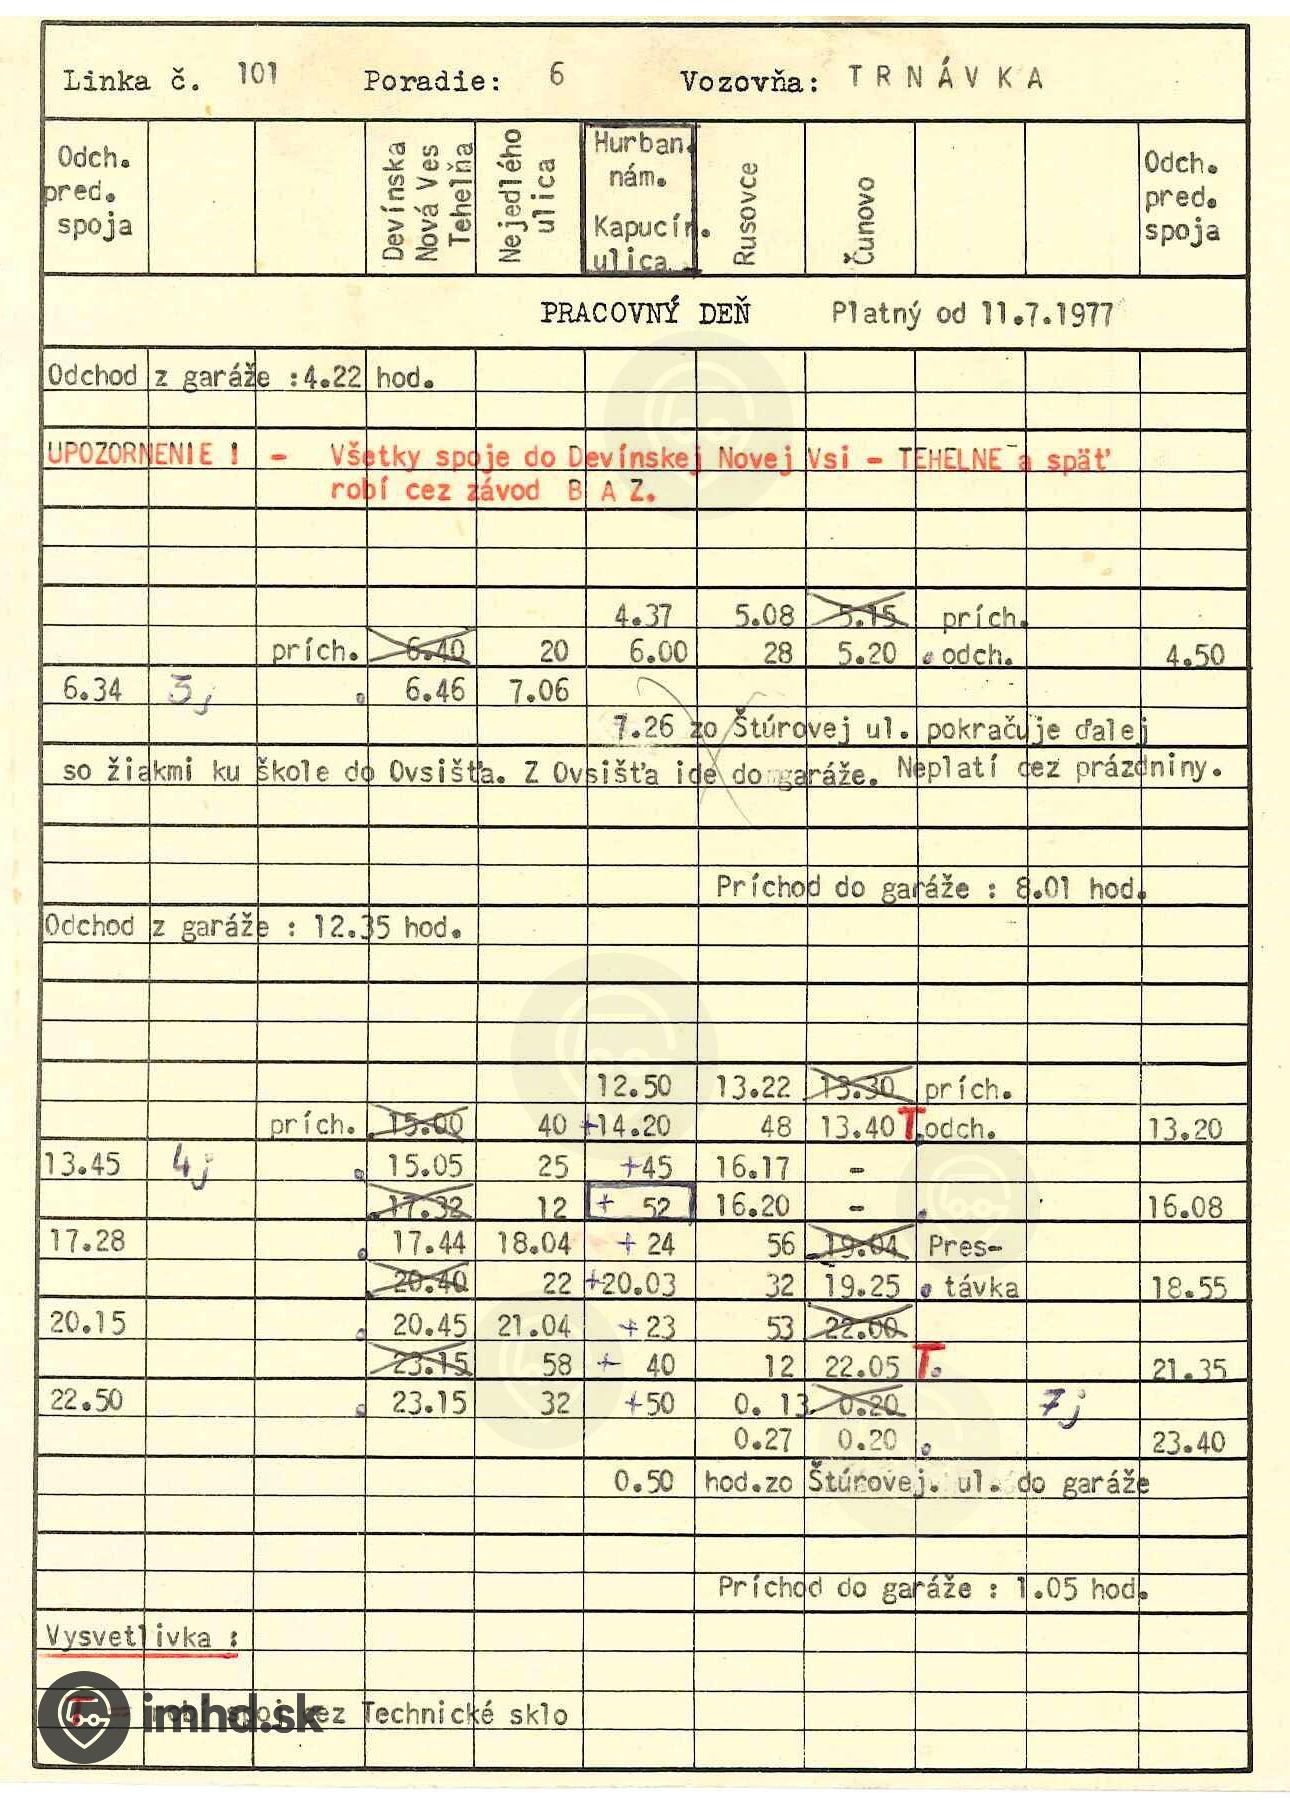 Linka č. 101 Poradie: 6 Vozovňa: TRNÁVKA
Odch. pred. spoja
Devínska Nová Ves Tehelňa
Nejedlého ulica
Hurban. nám. Kapucín. ulica
Rusovce
Čunovo
Odch. pred. spoja
PRACOVNÝ DEŇ Platný od 11.7.1977
Odchod z garáže :4.22 hod.
UPOZORNENIE ! - Všetky spoje do Devínskej Novej Vsi - TEHELNE a späť
robí cez závod B A Z.
4.37 5.08 5.15 prích.
prích. 6.40 20 6.00 28 5.20 odch. 4.50
6.34 3j 6.46 7.06
7.26 zo Štúrovej ul. pokračuje ďalej
so žiakmi ku škole do Ovsišťa. Z Ovsišťa ide do garáže. Neplatí cez prázdniny.
Príchod do garáže : 8.01 hod.
Odchod z garáže : 12.35 hod.
12.50 13.22 13.30 prích.
prích. 15.00 40 +14.20 48 13.40 T odch. 13.20
13.45 4j 15.05 25 +45 16.17 -
17.32 12 + 52 16.20 - 16.08
17.28 17.44 18.04 + 24 56 19.04 Pres-
20.40 22 +20.03 32 19.25 távka 18.55
20.15 20.45 21.04 +23 53 22.00
23.15 58 + 40 12 22.05 T. 21.35
22.50 23.15 32 +50 0. 13 0.20 7j
0.27 0.20 23.40
0.50 hod.zo Štúrovej. ul. do garáže
Príchod do garáže : 1.05 hod.
Vysvetlivka :
T = robí spoj cez Technické sklo
imhd.sk